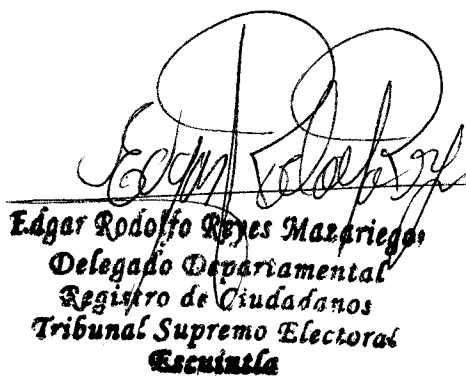 Edgar Rodolfo Rey
Edgar Rodolfo Reyes Mazariegos
Delegado Departamental
Registro de Ciudadanos
Tribunal Supremo Electoral
Escuintla